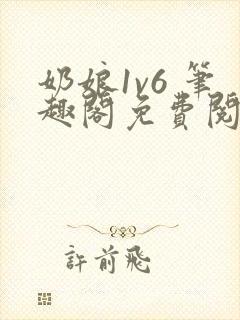 奶娘1v6 筆
趣閣免費閱
許前飛